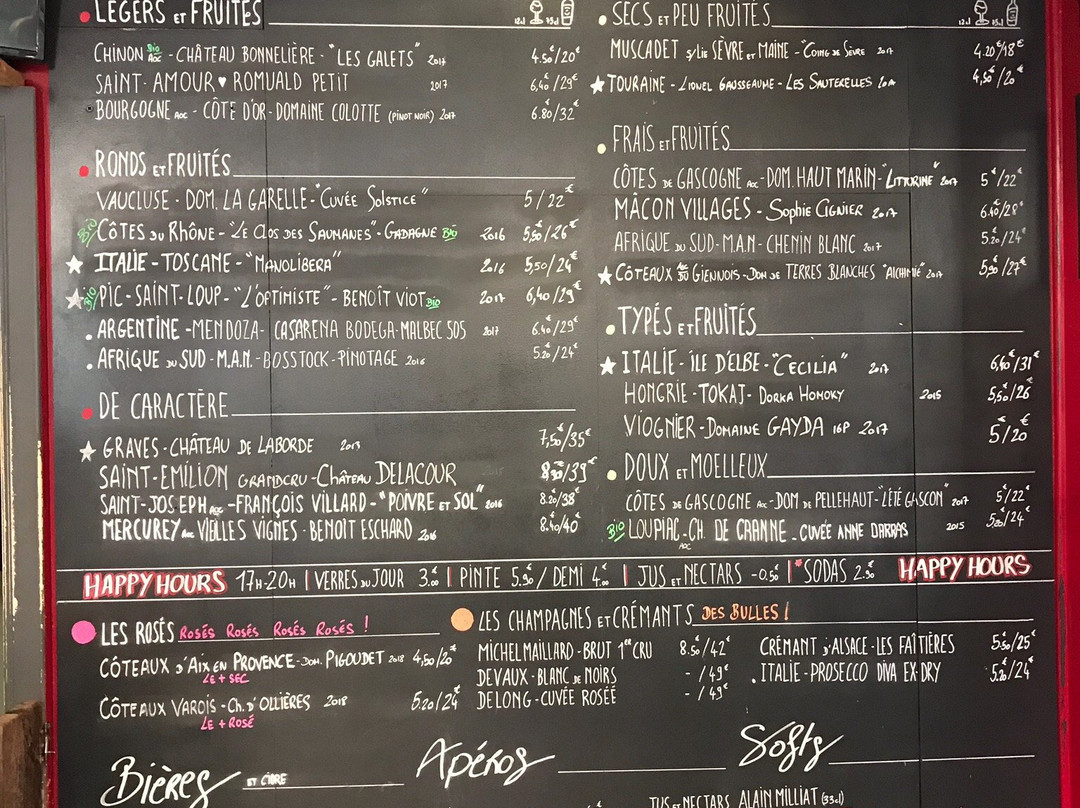 LÉGERS ET FRUITÉS 12cl 75cl
CHINON Bio AOC - CHÂTEAU BONNELIÈRE - "LES GALETS" 2017 4.50/20€
SAINT-AMOUR ♥ ROMUALD PETIT 2017 6,40/29€
BOURGOGNE AOC - CÔTE D'OR - DOMAINE COLOTTE (PINOT NOIR) 2017 6.80/32€
RONDS ET FRUITÉS
VAUCLUSE - DOM. LA GARELLE - "Cuvée Solstice" 5/22€
Bio CÔTES DU RHÔNE - "LE CLOS DES SAUMANES" - GADAGNE Bio 2016 5,50/26€
★ ITALIE - TOSCANE - "MANOLIBERA" 2016 5,50/24€
★ Bio PIC-SAINT-LOUP - "L'OPTIMISTE" - BENOÎT VIOT Bio 2017 6,40/29€
ARGENTINE - MENDOZA - CASARENA BODEGA - MALBEC 505 2017 6.40/29€
AFRIQUE DU SUD - M.A.N. - BOSSTOCK - PINOTAGE 2016 5.20/24€
DE CARACTÈRE
★ GRAVES - CHÂTEAU DE LABORDE 2013 7,50/35€
SAINT-EMILION GRAND CRU - Château DELACOUR /39€
SAINT-JOSEPH AOC - FRANÇOIS VILLARD - "POIVRE ET SOL" 2016 8.20/38€
MERCUREY AOC VIEILLES VIGNES - BENOIT ESCHARD 2016 8.40/40€
SECS ET PEU FRUITÉS 12cl 75cl
MUSCADET S/LIE SÈVRE ET MAINE - "COING DE SÈVRE 2017 4.20/18€
★ TOURAINE - LIONEL GAUSSEAUME - LES SAUTERELLES 4,50/20€
FRAIS ET FRUITÉS
CÔTES DE GASCOGNE AOC - DOM. HAUT MARIN - "LITTORINE" 2017 5/22€
MÂCON VILLAGES - Sophie CIGNIER 2017 6.40/28€
AFRIQUE DU SUD - M.A.N - CHENIN BLANC 2017 5.20/24€
★ CÔTEAUX DU GIENNOIS - DOM DE TERRES BLANCHES 2017 5,90/27€
TYPÉS ET FRUITÉS
★ ITALIE - ÎLE D'ELBE - "CECILIA" 2017 6,40/31€
HONGRIE - TOKAJ - DORKA HOMOKY 2015 5,50/26€
VIOGNIER - DOMAINE GAYDA IGP 2017 5/20€
DOUX ET MOELLEUX
CÔTES DE GASCOGNE AOC - DOM DE PELLEHAUT - "L'ÉTÉ GASCON" 2017 5/22€
Bio LOUPIAC - CH. DE CRANNE - CUVÉE ANNE DARRAS 2015 5.20/24€
AOC
HAPPY HOURS 17H-20H | VERRES DU JOUR 3.00€ | PINTE 5.50€ / DEMI 4.00€ | JUS ET NECTARS -0.50€ | *SODAS 2.50€ HAPPY HOURS
LES ROSÉS Rosés Rosés Rosés Rosés !
CÔTEAUX D'AIX EN PROVENCE - DOM. PIGOUDET 2018 4,50/20€
LE + SEC
CÔTEAUX VAROIS - CH. D'OLLIÈRES 2018 5.20/24€
LE + ROSÉ
LES CHAMPAGNES ET CRÉMANTS DES BULLES !
MICHEL MAILLARD - BRUT 1er CRU 8.50/42€
DEVAUX - BLANC DE NOIRS - /49€
DELONG - CUVÉE ROSÉE - /49€
CRÉMANT D'ALSACE - LES FAÎTIÈRES 5.50/25€
ITALIE - PROSECCO DIVA EX-DRY 5.20/24€
Bières ET CIDRE
Apéros
Softs
JUS ET NECTARS ALAIN MILLIAT (33cl)